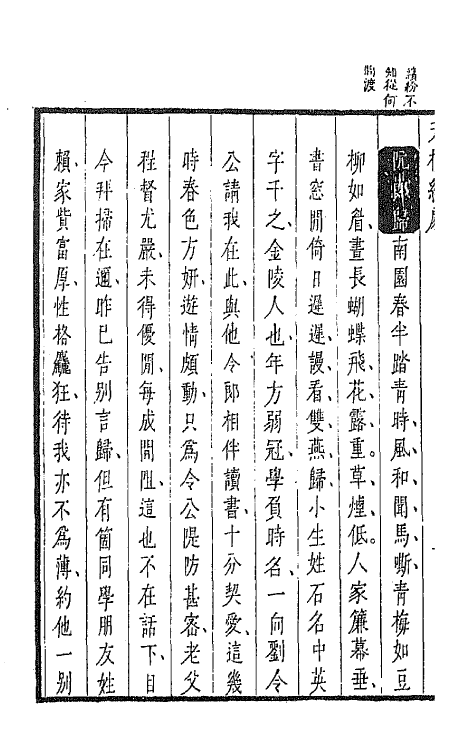 繽紛不
知從何
問渡
阮郎歸 南園春半踏青時、風和聞馬嘶、青梅如豆
柳如眉、晝長蝴蝶飛、花露重。草煙低。人家簾幕垂、
書窓閒倚日遲遲、謾看雙燕歸、小生姓石名中英
字千之、金陵人也、年方弱冠、學負時名、一向劉令
公請我在此、與他令郎相伴讀書、十分契愛、這幾
時春色方妍、遊情頗動、只為令公隄防甚密、老父
程督尤嚴、未得優閒、每成間阻、這也不在話下、目
今拜掃在邇、昨已告別言歸、但有箇同學朋友姓
賴、家貲富厚、性格麤狂、待我亦不為薄、約他一別